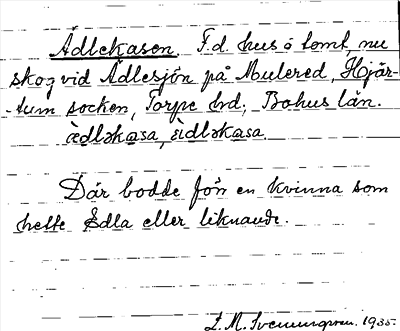 Ädlekasen. F.d. hus o tomt, nu
skog vid Ädlesjön på Mulered, Hjär-
-tum socken, Torpe hd; Bohus län.
ædləkasa, ædləkasa.
Där bodde förr en kvinna som
hette Edla eller liknande.
L. M. Svenungsson. 1935.